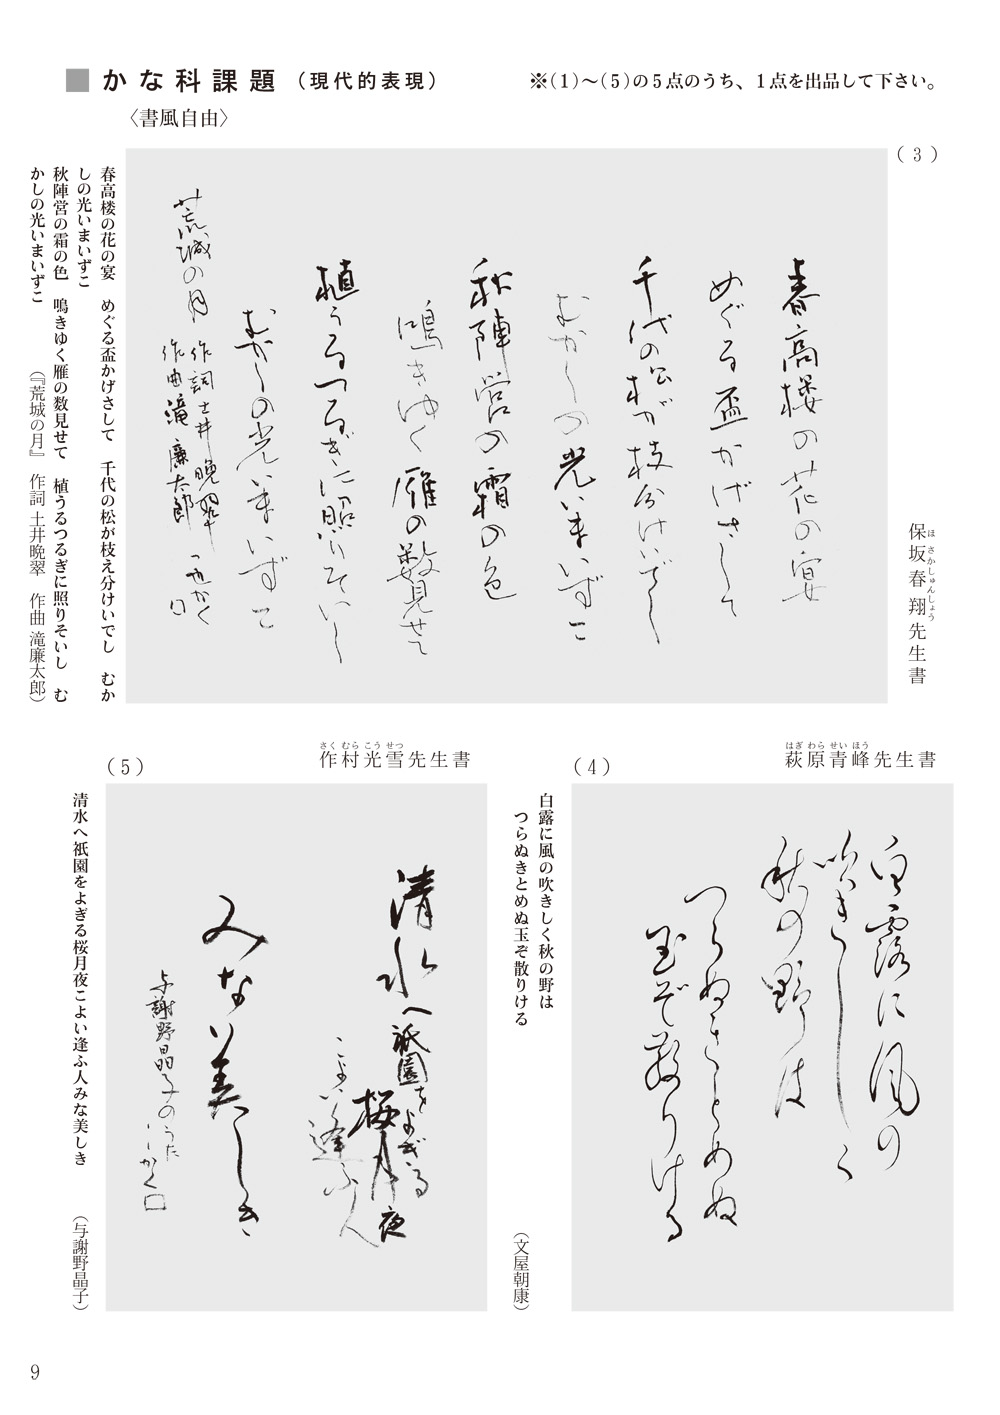 ■かな科課題（現代的表現）
※(1)～(5)の5点のうち、1点を出品して下さい。
〈書風自由〉
(3)
保坂春翔先生書
ほさかしゅんしょう
春高楼の花の宴
めぐる盃かげさして
千代の松が枝分けいでし
むかしの光いまいずこ
秋陣営の霜の色
鳴きゆく雁の数見せて
植うるつるぎに照りそいし
むかしの光いまいずこ
荒城の月
作詞土井晩翠
作曲滝廉太郎
春高楼の花の宴　めぐる盃かげさして　千代の松が枝え分けいでし　むか
しの光いまいずこ
秋陣営の霜の色　鳴きゆく雁の数見せて　植うるつるぎに照りそいし　む
かしの光いまいずこ
（『荒城の月』　作詞 土井晩翠　作曲 滝廉太郎）
(4)
萩原青峰先生書
はぎわらせいほう
白露に風の
吹きしく
秋の野は
つらぬきとめぬ
玉ぞ散りける
白露に風の吹きしく秋の野は
つらぬきとめぬ玉ぞ散りける
（文屋朝康）
(5)
作村光雪先生書
さくむらこうせつ
清水へ祇園をよぎる
桜月夜
こよい逢ふ人
みな美しき
与謝野晶子のうた
清水へ祇園をよぎる桜月夜こよい逢ふ人みな美しき
（与謝野晶子）
9